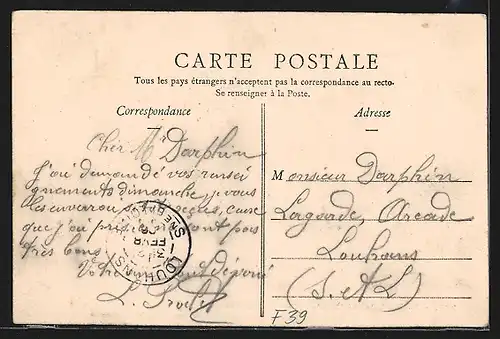 CARTE POSTALE
Tous les pays étrangers n'acceptent pas la correspondance au recto
Se renseigner à la Poste.
Correspondance
Adresse
Cher Mr Darphin
J'ai demandé vos rensei
gnements dimanche, je vous
les enverai
que j'ai pas
très
Votre
L.
Monsieur Darphin
Lagarde Arcade
Louhans
(S. et L)
LOUHANS
FEVR
F39